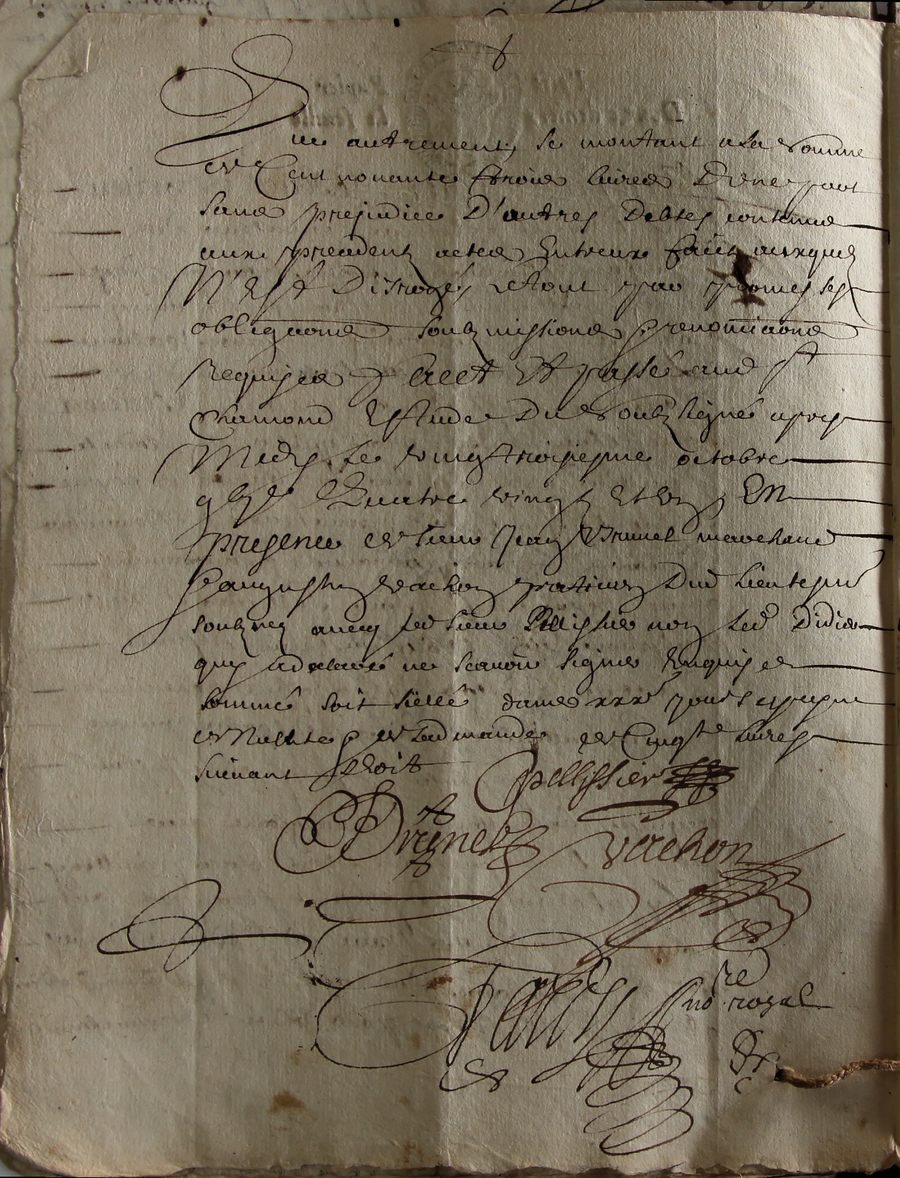 que autrement, se montant a la somme
de Cent nonante trois livres D'une part
sans prejudice D'autres Debtes contenus
aux precedents actes Entreux faits auxquels
N'est Desrogé, le tout par promesses
obligaons soubzmissions & renonciaons
requises & faict Et passé aud St
Chamond Estude Du soubzsigné apres
Midy Le vingt troisiesme octobre
Quatre vingt Et En
presence de sieur Jean Brunel marchand
Vachon praticien Dud lieu
soubznez avecq led sieur Pellissier non led Didier
qui a declaré ne scavoir signer Enquis et
sommé soit seellé dans jours a peyne
de Nullité & de Ladmande de Cinqte livres
suivant L'edit
Pellissier
Brunel Vachon
nore royal